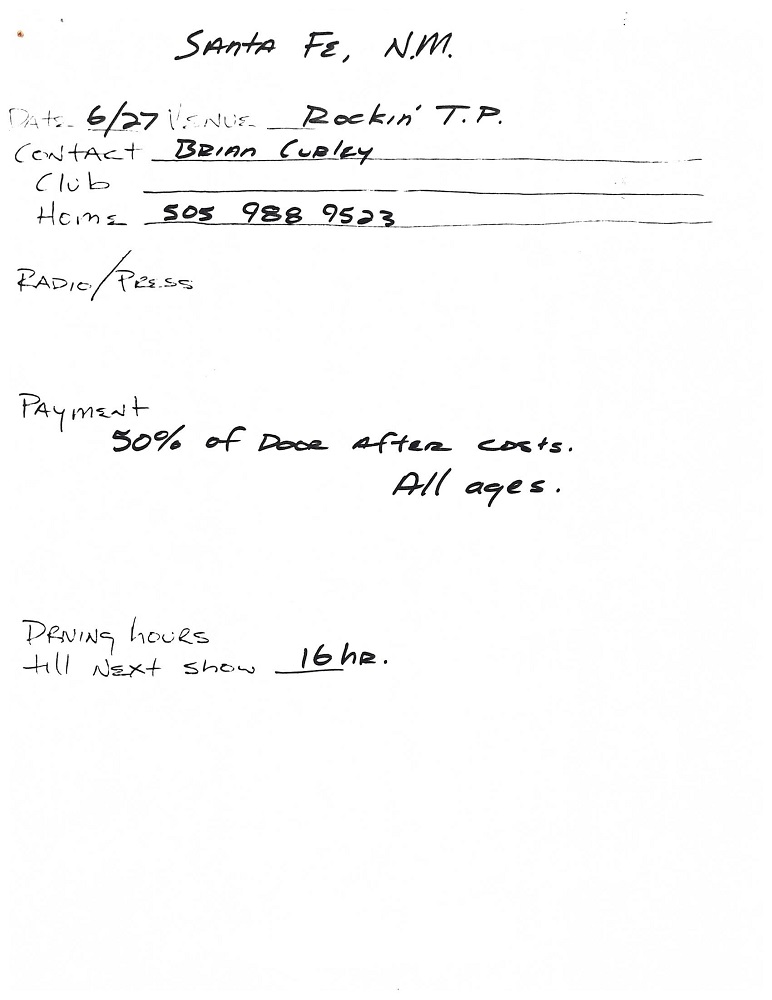 Santa Fe, N.M.
Date 6/27 Venue Rockin' T.P.
Contact Brian Curley
Club
Home 505 988 9523
Radio/Press
Payment
50% of Door After costs.
All ages.
Driving hours
till Next show 16 hr.